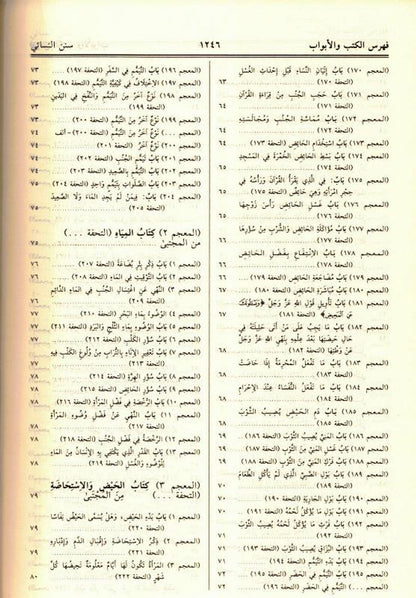 فهرس الكتب والأبواب
١٢٤٦
سنن النسائي
(المعجم ١٧٠) بَابُ إِتْيَانِ النِّسَاءِ قَبْلَ إِحْدَاثِ الْغُسْلِ
(التحفة ١٧٠) ٦٣
(المعجم ١٧١) بَابُ حَجْبِ الْجُنُبِ مِنْ قِرَاءَةِ الْقُرْآنِ
(التحفة ١٧١) ٦٤
(المعجم ١٧٢) بَابُ مُمَاسَّةِ الْجُنُبِ وَمُجَالَسَتِهِ
(التحفة ١٧٢) ٦٤
(المعجم ١٧٣) بَابُ اسْتِخْدَامِ الْحَائِضِ (التحفة ١٧٣) ٦٤
(المعجم ١٧٤) بَابُ بَسْطِ الْحَائِضِ الْخُمْرَةَ فِي الْمَسْجِدِ
(التحفة ١٧٤) ٦٥
(المعجم ١٧٥) بَابٌ: فِي الَّذِي يَقْرَأُ الْقُرْآنَ وَرَأْسُهُ فِي
حِجْرِ امْرَأَتِهِ وَهِيَ حَائِضٌ (التحفة ١٧٥) ٦٥
(المعجم ١٧٦) بَابُ غَسْلِ الْحَائِضِ رَأْسَ زَوْجِهَا
(التحفة ١٧٦) ٦٥
(المعجم ١٧٧) بَابُ مُؤَاكَلَةِ الْحَائِضِ وَالشُّرْبِ مِنْ سُؤْرِهَا
(التحفة ١٧٧) ٦٥
(المعجم ١٧٨) بَابُ الِانْتِفَاعِ بِفَضْلِ الْحَائِضِ
(التحفة ١٧٨)
(المعجم ١٧٩) بَابُ مُضَاجَعَةِ الْحَائِضِ (التحفة ١٧٩)
(المعجم ١٨٠) بَابُ مُبَاشَرَةِ الْحَائِضِ (التحفة ١٨٠)
(المعجم ١٨١) بَابُ تَأْوِيلِ قَوْلِ اللهِ عَزَّ وَجَلَّ ﴿وَيَسْأَلُونَكَ
عَنِ الْمَحِيضِ﴾ (التحفة ١٨١)
(المعجم ١٨٢) بَابُ مَا يَجِبُ عَلَى مَنْ أَتَى حَلِيلَتَهُ فِي
حَالِ حَيْضَتِهَا بَعْدَ عِلْمِهِ بِنَهْيِ اللهِ عَزَّ وَجَلَّ
عَنْ وَطْئِهَا (التحفة ١٨٢)
(المعجم ١٨٣) بَابُ مَا تَفْعَلُ الْمُحْرِمَةُ إِذَا حَاضَتْ
(التحفة ١٨٣) ٦٨
(المعجم ١٨٤) بَابُ مَا تَفْعَلُ النُّفَسَاءُ عِنْدَ الْإِحْرَامِ
(التحفة ١٨٤) ٦٨
(المعجم ١٨٥) بَابُ دَمِ الْحَيْضِ يُصِيبُ الثَّوْبَ
(التحفة ١٨٥)
(المعجم ١٨٦) بَابُ الْمَنِيِّ يُصِيبُ الثَّوْبَ (التحفة ١٨٦) ٦٩
(المعجم ١٨٧) بَابُ غَسْلِ الْمَنِيِّ مِنَ الثَّوْبِ (التحفة ١٨٧) ٦٩
(المعجم ١٨٨) بَابُ فَرْكِ الْمَنِيِّ مِنَ الثَّوْبِ (التحفة ١٨٨) ٦٩
(المعجم ١٨٩) بَابُ بَوْلِ الصَّبِيِّ الَّذِي لَمْ يَأْكُلِ الطَّعَامَ
(التحفة ١٨٩) ٧٠
(المعجم ١٩٠) بَابُ بَوْلِ الْجَارِيَةِ (التحفة ١٩٠) ٧٠
(المعجم ١٩١) بَابُ بَوْلِ مَا يُؤْكَلُ لَحْمُهُ (التحفة ١٩١) ٧٠
(المعجم ١٩٢) بَابُ فَرْثِ مَا يُؤْكَلُ لَحْمُهُ يُصِيبُ الثَّوْبَ
(التحفة ١٩٢) ٧١
(المعجم ١٩٣) بَابُ الْبُزَاقِ يُصِيبُ الثَّوْبَ (التحفة ١٩٣) ٧١
(المعجم ١٩٤) بَابُ بَدْءِ التَّيَمُّمِ (التحفة ١٩٤) ٧١
(المعجم ١٩٥) بَابُ التَّيَمُّمِ فِي الْحَضَرِ (التحفة ١٩٥) ٧٢
(المعجم ...) التَّيَمُّمُ فِي الْحَضَرِ (التحفة ١٩٦) ٧٢
(المعجم ١٩٦) بَابُ التَّيَمُّمِ فِي السَّفَرِ (التحفة ١٩٧) ٧٣
(المعجم ١٩٧) الِاخْتِلَافُ فِي كَيْفِيَّةِ التَّيَمُّمِ (التحفة ١٩٨) ٧٣
(المعجم ١٩٨) نَوْعٌ آخَرُ مِنَ التَّيَمُّمِ وَالنَّفْخِ فِي الْيَدَيْنِ
(التحفة ١٩٩) ٧٣
(المعجم ١٩٩) نَوْعٌ آخَرُ مِنَ التَّيَمُّمِ (التحفة ٢٠٠) ٧٣
(المعجم ...) نَوْعٌ آخَرُ مِنَ التَّيَمُّمِ (التحفة ٢٠٠ - ألف) ٧٤
(المعجم ٢٠٠) نَوْعٌ آخَرُ (التحفة ٢٠١) ٧٤
(المعجم ٢٠١) بَابُ تَيَمُّمِ الْجُنُبِ (التحفة ٢٠٢) ٧٤
(المعجم ٢٠٢) بَابُ التَّيَمُّمِ بِالصَّعِيدِ (التحفة ٢٠٣) ٧٤
(المعجم ٢٠٣) بَابُ الصَّلَوَاتِ بِتَيَمُّمٍ وَاحِدٍ (التحفة ٢٠٤) ٧٥
(المعجم ٢٠٤) بَابٌ: فِيمَنْ لَمْ يَجِدِ الْمَاءَ وَلَا الصَّعِيدَ
(التحفة ٢٠٥) ٧٥
(المعجم ٢) كِتَابُ الْمِيَاهِ (التحفة ...)
من المجتبى ٧٥
(المعجم ١) بَابُ ذِكْرِ بِئْرِ بُضَاعَةَ (التحفة ٢٠٧) ٧٦
(المعجم ٢) بَابُ التَّوْقِيتِ فِي الْمَاءِ (التحفة ٢٠٨) ٧٦
(المعجم ٣) النَّهْيُ عَنِ اغْتِسَالِ الْجُنُبِ فِي الْمَاءِ الدَّائِمِ
(التحفة ٢٠٩) ٧٦
(المعجم ٤) الْوُضُوءُ بِمَاءِ الْبَحْرِ (التحفة ٢١٠) ٧٧
(المعجم ٥) بَابُ الْوُضُوءِ بِمَاءِ الثَّلْجِ وَالْبَرَدِ (التحفة ٢١١) ٧٧
(المعجم ٦) بَابُ سُؤْرِ الْكَلْبِ (التحفة ٢١٢) ٧٧
(المعجم ٧) بَابُ تَعْفِيرِ الْإِنَاءِ بِالتُّرَابِ مِنْ وُلُوغِ الْكَلْبِ فِيهِ
(التحفة ٢١٣) ٧٧
(المعجم ٨) بَابُ سُؤْرِ الْهِرَّةِ (التحفة ٢١٤) ٧٨
(المعجم ٩) بَابُ سُؤْرِ الْحَائِضِ (التحفة ٢١٥) ٧٨
(المعجم ١٠) بَابُ الرُّخْصَةِ فِي فَضْلِ الْمَرْأَةِ (التحفة ٢١٦) ٧٨
(المعجم ١١) بَابُ النَّهْيِ عَنْ فَضْلِ وُضُوءِ الْمَرْأَةِ
(التحفة ٢١٧) ٧٨
(المعجم ١٢) الرُّخْصَةُ فِي فَضْلِ الْجُنُبِ (التحفة ٢١٨) ٧٨
(المعجم ١٣) بَابُ الْقَدْرِ الَّذِي يَكْتَفِي بِهِ الْإِنْسَانُ مِنَ الْمَاءِ
لِلْوُضُوءِ وَالْغُسْلِ (التحفة ٢١٩) ٧٨
(المعجم ٣) كِتَابُ الْحَيْضِ وَالِاسْتِحَاضَةِ
(التحفة ...) مِنَ الْمُجْتَبَى ٧٩
(المعجم ١) بَابُ بَدْءِ الْحَيْضِ، وَهَلْ يُسَمَّى الْحَيْضُ نِفَاسًا
(التحفة ٢٢٠) ٧٩
(المعجم ٢) ذِكْرُ الِاسْتِحَاضَةِ وَإِقْبَالِ الدَّمِ وَإِدْبَارِهِ
(التحفة ٢٢١) ٧٩
(المعجم ٣) الْمَرْأَةُ تَكُونُ لَهَا أَيَّامٌ مَعْلُومَةٌ تَحِيضُهَا كُلَّ
شَهْرٍ (التحفة ٢٢٢) ٨٠